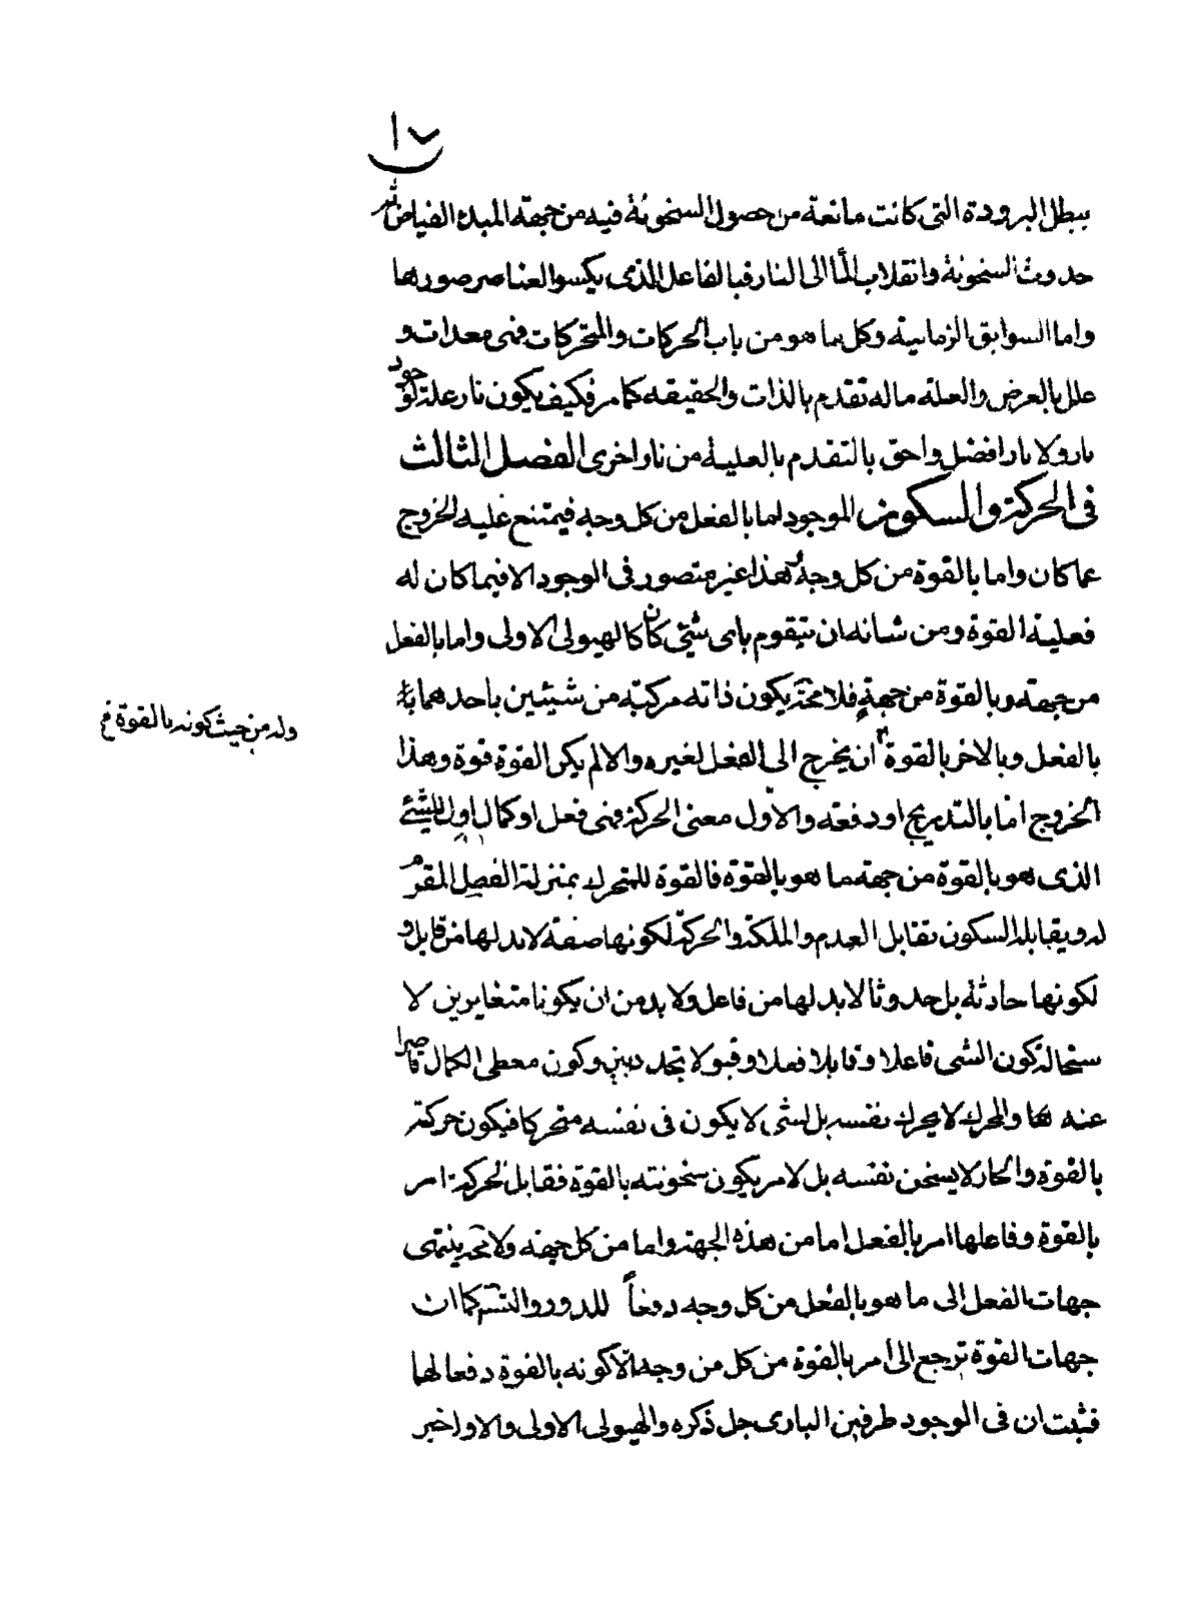 ١٧
يبطل البرودة التى كانت مانعة من حصول السخونة فيه من جهة المبدء الفياض
حدوث السخونة وانقلاب الماء الى النار فبالفاعل الذى يكسو العناصر صورها
واما السوابق الزمانية وكل ما هو من باب الحركات والمتحركات فهى معدات و
علل بالعرض والعلة ما له تقدم بالذات والحقيقه كما مر فكيف يكون نار علة لوجود
نار ولا نار افضل واحق بالتقدم بالعلية من نار اخرى الفصل الثالث
فى الحركة والسكون الموجود اما بالفعل من كل وجه فيمتنع عليه الخروج
عما كان واما بالقوة من كل وجه هذا غير متصور فى الوجود الا فيما كان له
فعلية القوة ومن شانه ان يتقوم باى شئ كان كالهيولى الاولى واما بالفعل
من جهة وبالقوة من جهة فلا محة يكون ذاته مركبة من شيئين باحدهما
وله من حيث كونه بالقوة
بالفعل وبالاخر بالقوة ان يخرج الى الفعل لغيره والا لم يكن القوة قوة وهذا
الخروج اما بالتدريج او دفعة والاول معنى الحركة فهى فعل او كمال اول للشئ
الذى هو بالقوة من جهة ما هو بالقوة فالقوة للمتحرك بمنزلة الفصل المقوم
له ويقابله السكون تقابل العدم والملكة والحركة لكونها صفة لابد لها من قابل و
لكونها حادثة بل حدوثا لابد لها من فاعل ولابد من ان يكونا متغايرين لا
ستحالة كون الشى فاعلا وقابلا فعلا وقبولا تجدديين وكون معطى الكمال قاصرا
عنه والمحرك لا يحرك نفسه بل لشى لا يكون فى نفسه متحركا فيكون حركته
بالقوة والحار لا يسخن نفسه بل لامر يكون سخونته بالقوة فقابل الحركة امر
بالقوة وفاعلها امر بالفعل اما من هذه الجهة واما من كل جهة ولا محة ينتهى
جهات الفعل الى ما هو بالفعل من كل وجه دفعاً للدور والتسَ كما ان
جهات القوة ترجع الى امر بالقوة من كل من وجه الا كونه بالقوة دفعا لهما
فثبت ان فى الوجود طرفين البارى جل ذكره والهيولى الاولى والاول خير